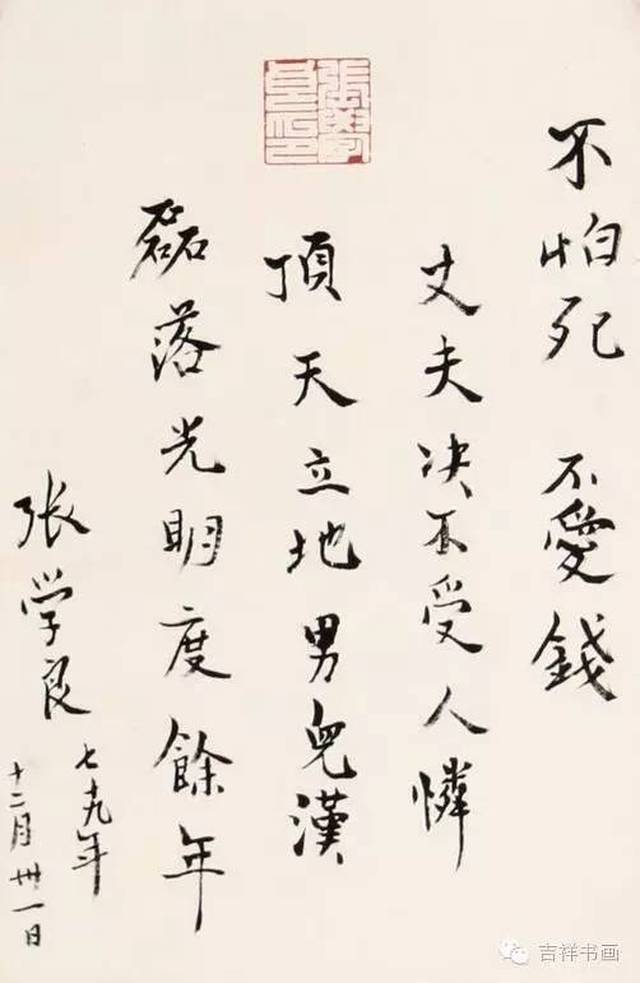 不怕死 不愛錢
丈夫决不受人憐
頂天立地男兒漢
磊落光明度餘年
张学良
七十九年
十二月卅一日
張學良印
吉祥书画